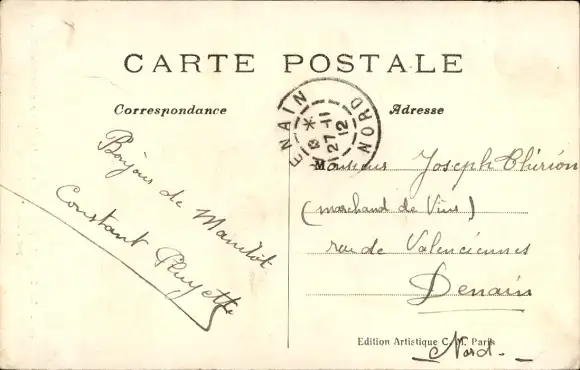 CARTE POSTALE
Correspondance
Adresse
DENAIN
NORD
27-11
12
Bonjour de
Constant
Monsieur Joseph
(marchand de Vins)
rue de Valenciennes
Denain
Edition Artistique C. M. Paris
Nord.